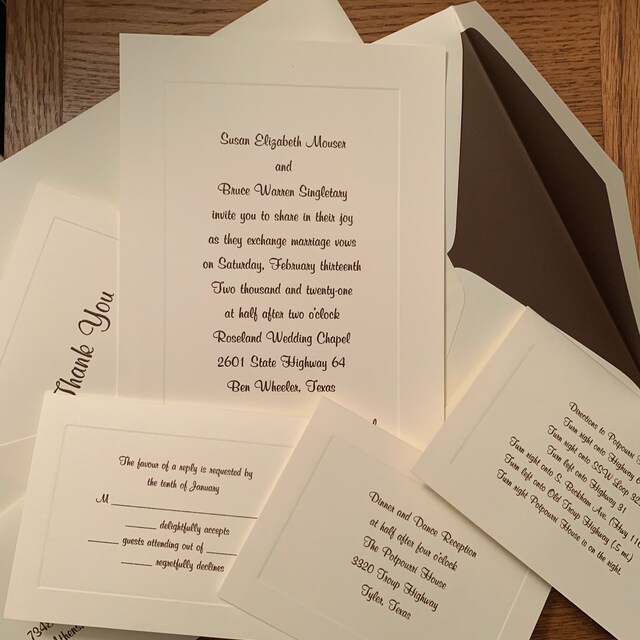 Susan Elizabeth Mouser
and
Bruce Warren Singletary
invite you to share in their joy
as they exchange marriage vows
on Saturday, February thirteenth
Two thousand and twenty-one
at half after two o'clock
Roseland Wedding Chapel
2601 State Highway 64
Ben Wheeler, Texas
Thank You
The favour of a reply is requested by
the tenth of January
M
delightfully accepts
guests attending out of
regretfully declines
Dinner and Dance Reception
at half after four o'clock
The Potpourri House
3320 Troup Highway
Tyler, Texas
Directions to Potpourri
Turn right onto Highway
Turn right onto SSW Loop
Turn left onto Highway 31
Turn right onto S. Beckham Ave. (Hwy
Turn left onto Old Troup Highway (.5 mi.)
Turn right Potpourri House is on the right.